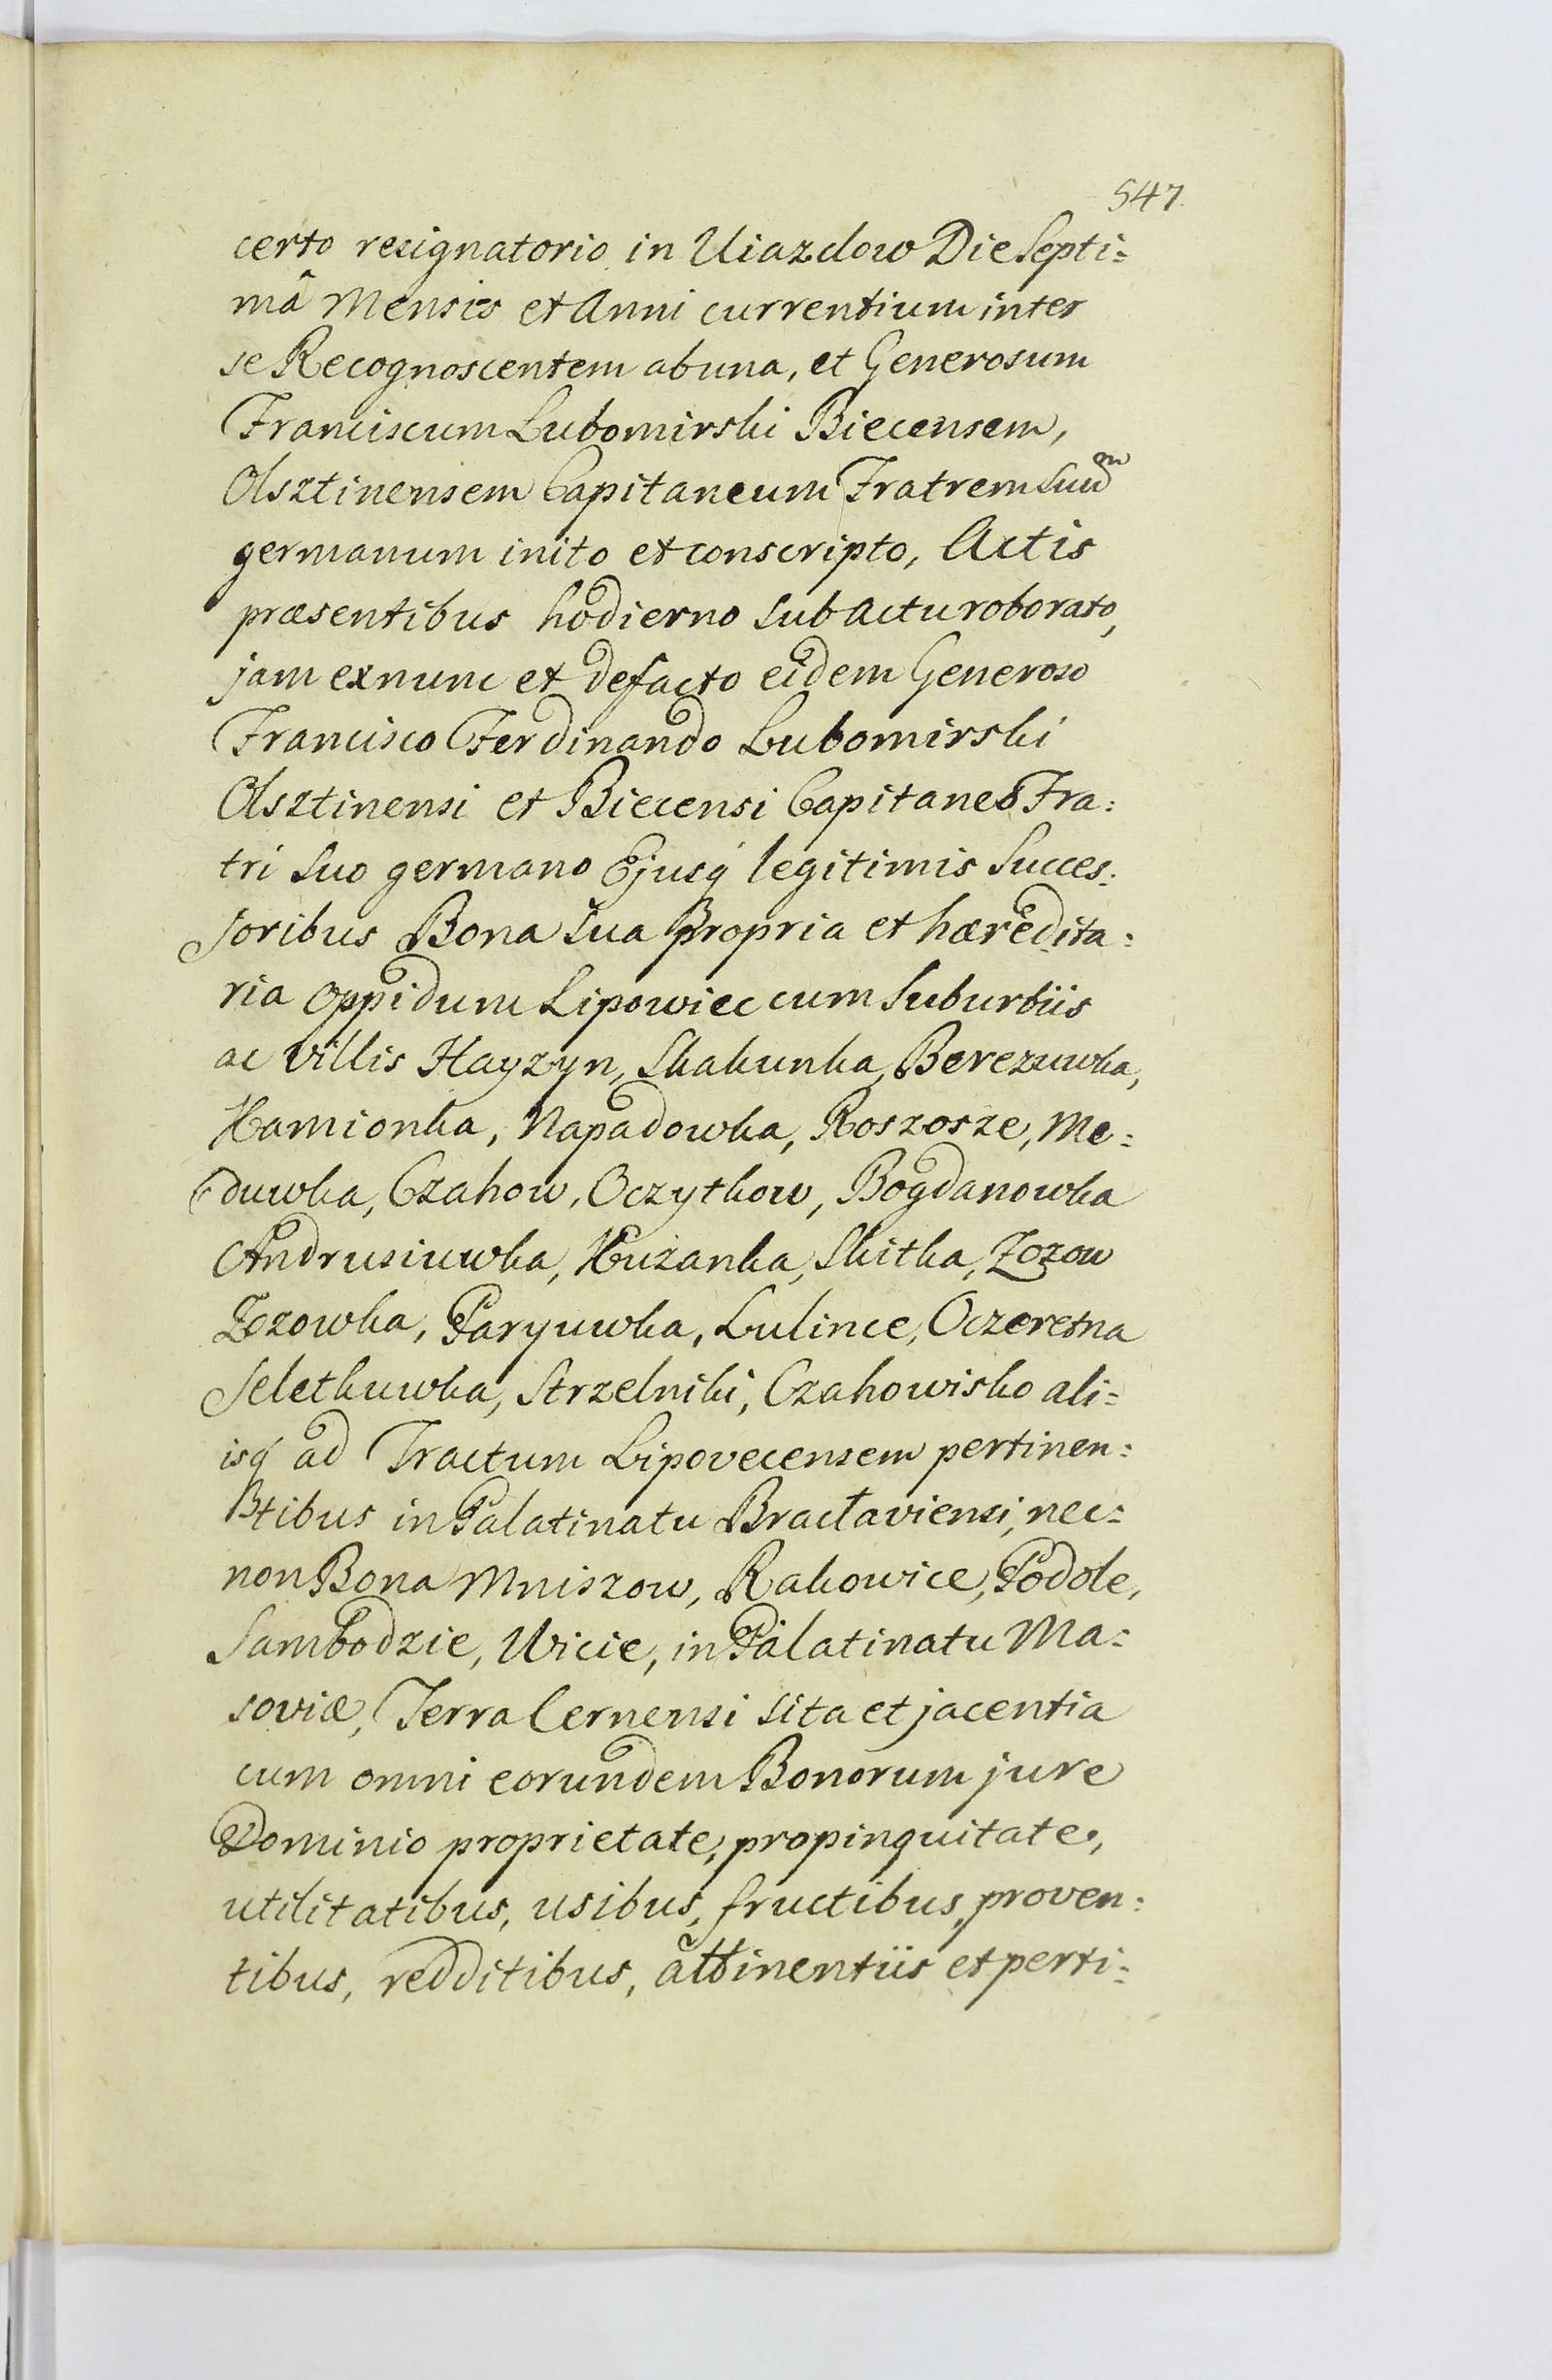 547.
certo resignatorio in Uiazdow Die Septi=
mâ Mensis et Anni currentium inter
se Recognoscentem ab una, et Generosum
Franciscum Lubomirski Biecensem,
Olsztinensem Capitaneum Fratrem Suũ
germanum inito et conscripto, Actis
præsentibus hodierno sub actu roborato,
jam exnunc et defacto eidem Generoso
Francisco Ferdinando Lubomirski
Olsztinensi et Biecensi Capitaneo Fra=
tri Suo germano Ejusq́ legitimis Succes=
soribus Bona Sua Propria et hæredita=
ria oppidum Lipowiec cum Suburbiis
ac Villis Hayzyn, Skakunka, Berezuwka,
Kamionka, Napadowka, Roszosze, Me=
duwka, Czahow, Oczytkow, Bogdanowka
Andrusiuwka, Kużanka, Skitka, Zozow
Zozowka, Paryuwka, Lulince, Oczeretna
Seletkuwka, Strzelniki, Czahowisko ali=
isq́ ad Tractum Lipovecensem pertinen=
tibus in Palatinatu Braclaviensi, nec=
non Bona Mniszow, Rakowice, Podole,
Sambodzie, Wicie, in Palatinatu Ma=
soviæ, Terra Cernensi Sita et jacentia
cum omni eorundem Bonorum jure
Dominio proprietate, propinquitate,
utilitatibus, usibus, fructibus, proven=
tibus, redditibus, attinentiis et perti=